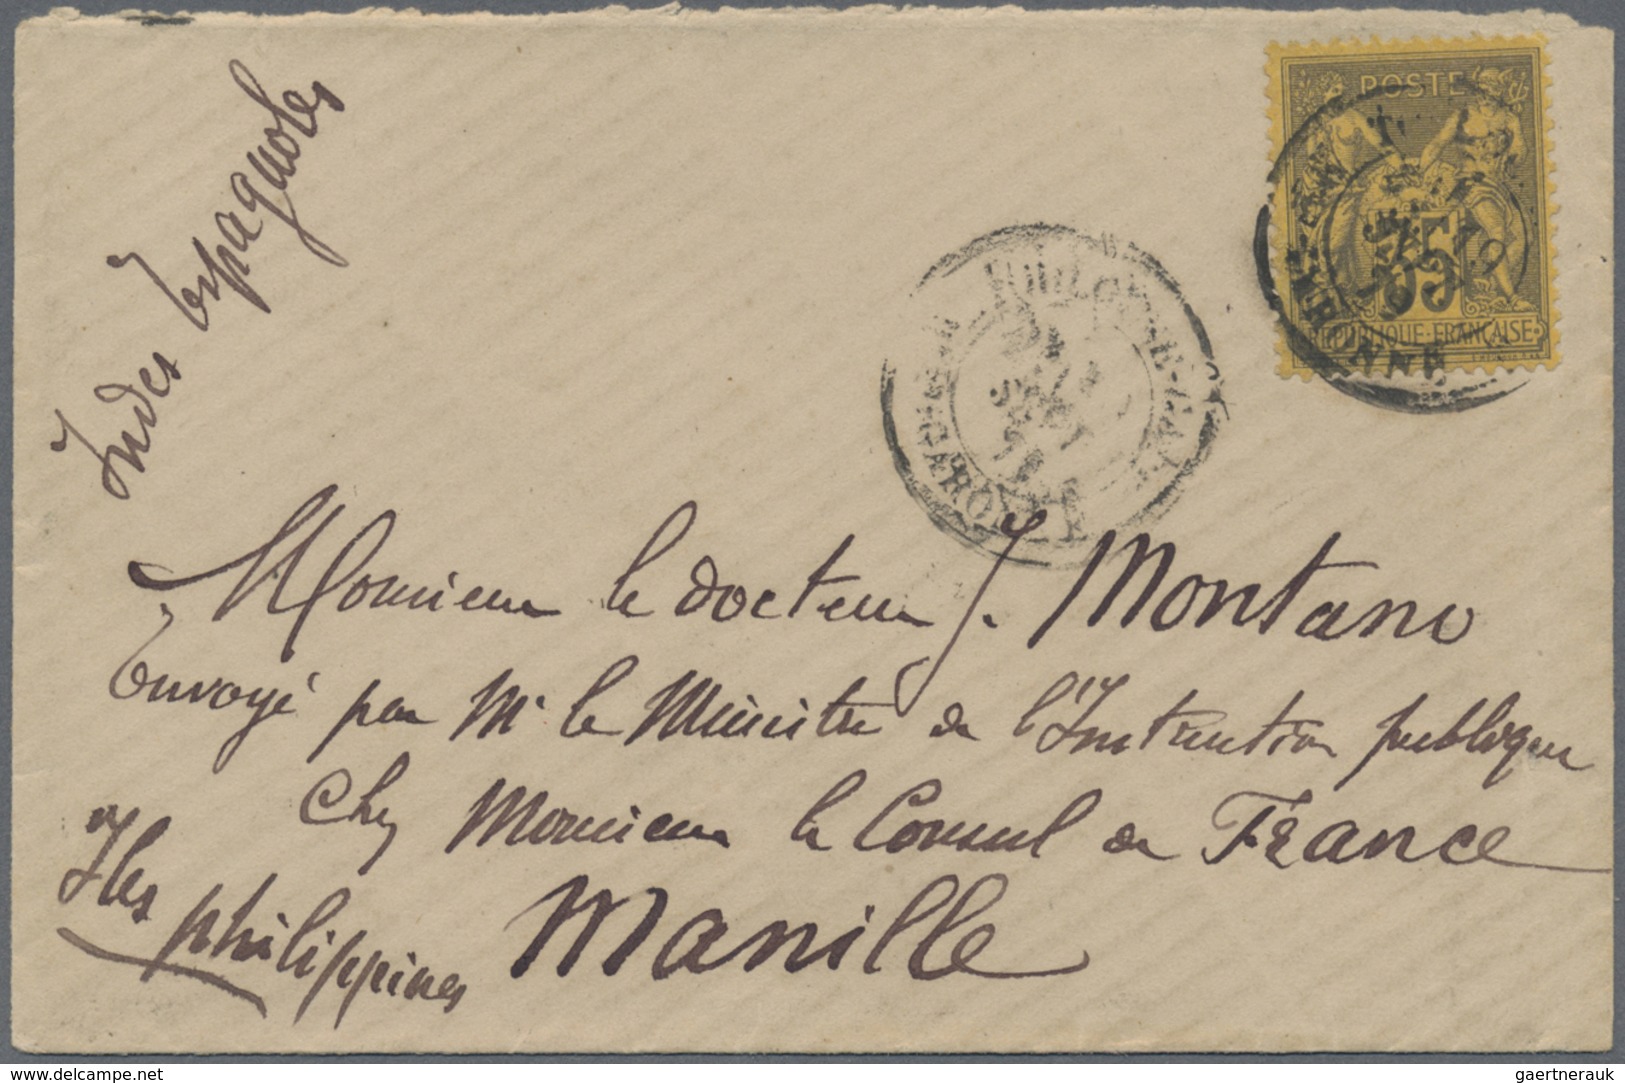 POSTE
35
REPUBLIQUE · FRANÇAISE
GARONNE
Indes Espagnoles
Monsieur le docteur J. Montano
Envoyé par Mr le Ministre de l'Instruction publique
Chez Monsieur le Consul de France
Manille
Iles philippines
www.delcampe.net
gaertnerauk